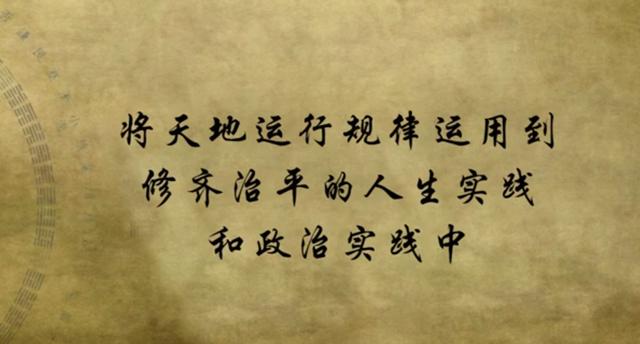 将天地运行规律运用到
修齐治平的人生实践
和政治实践中